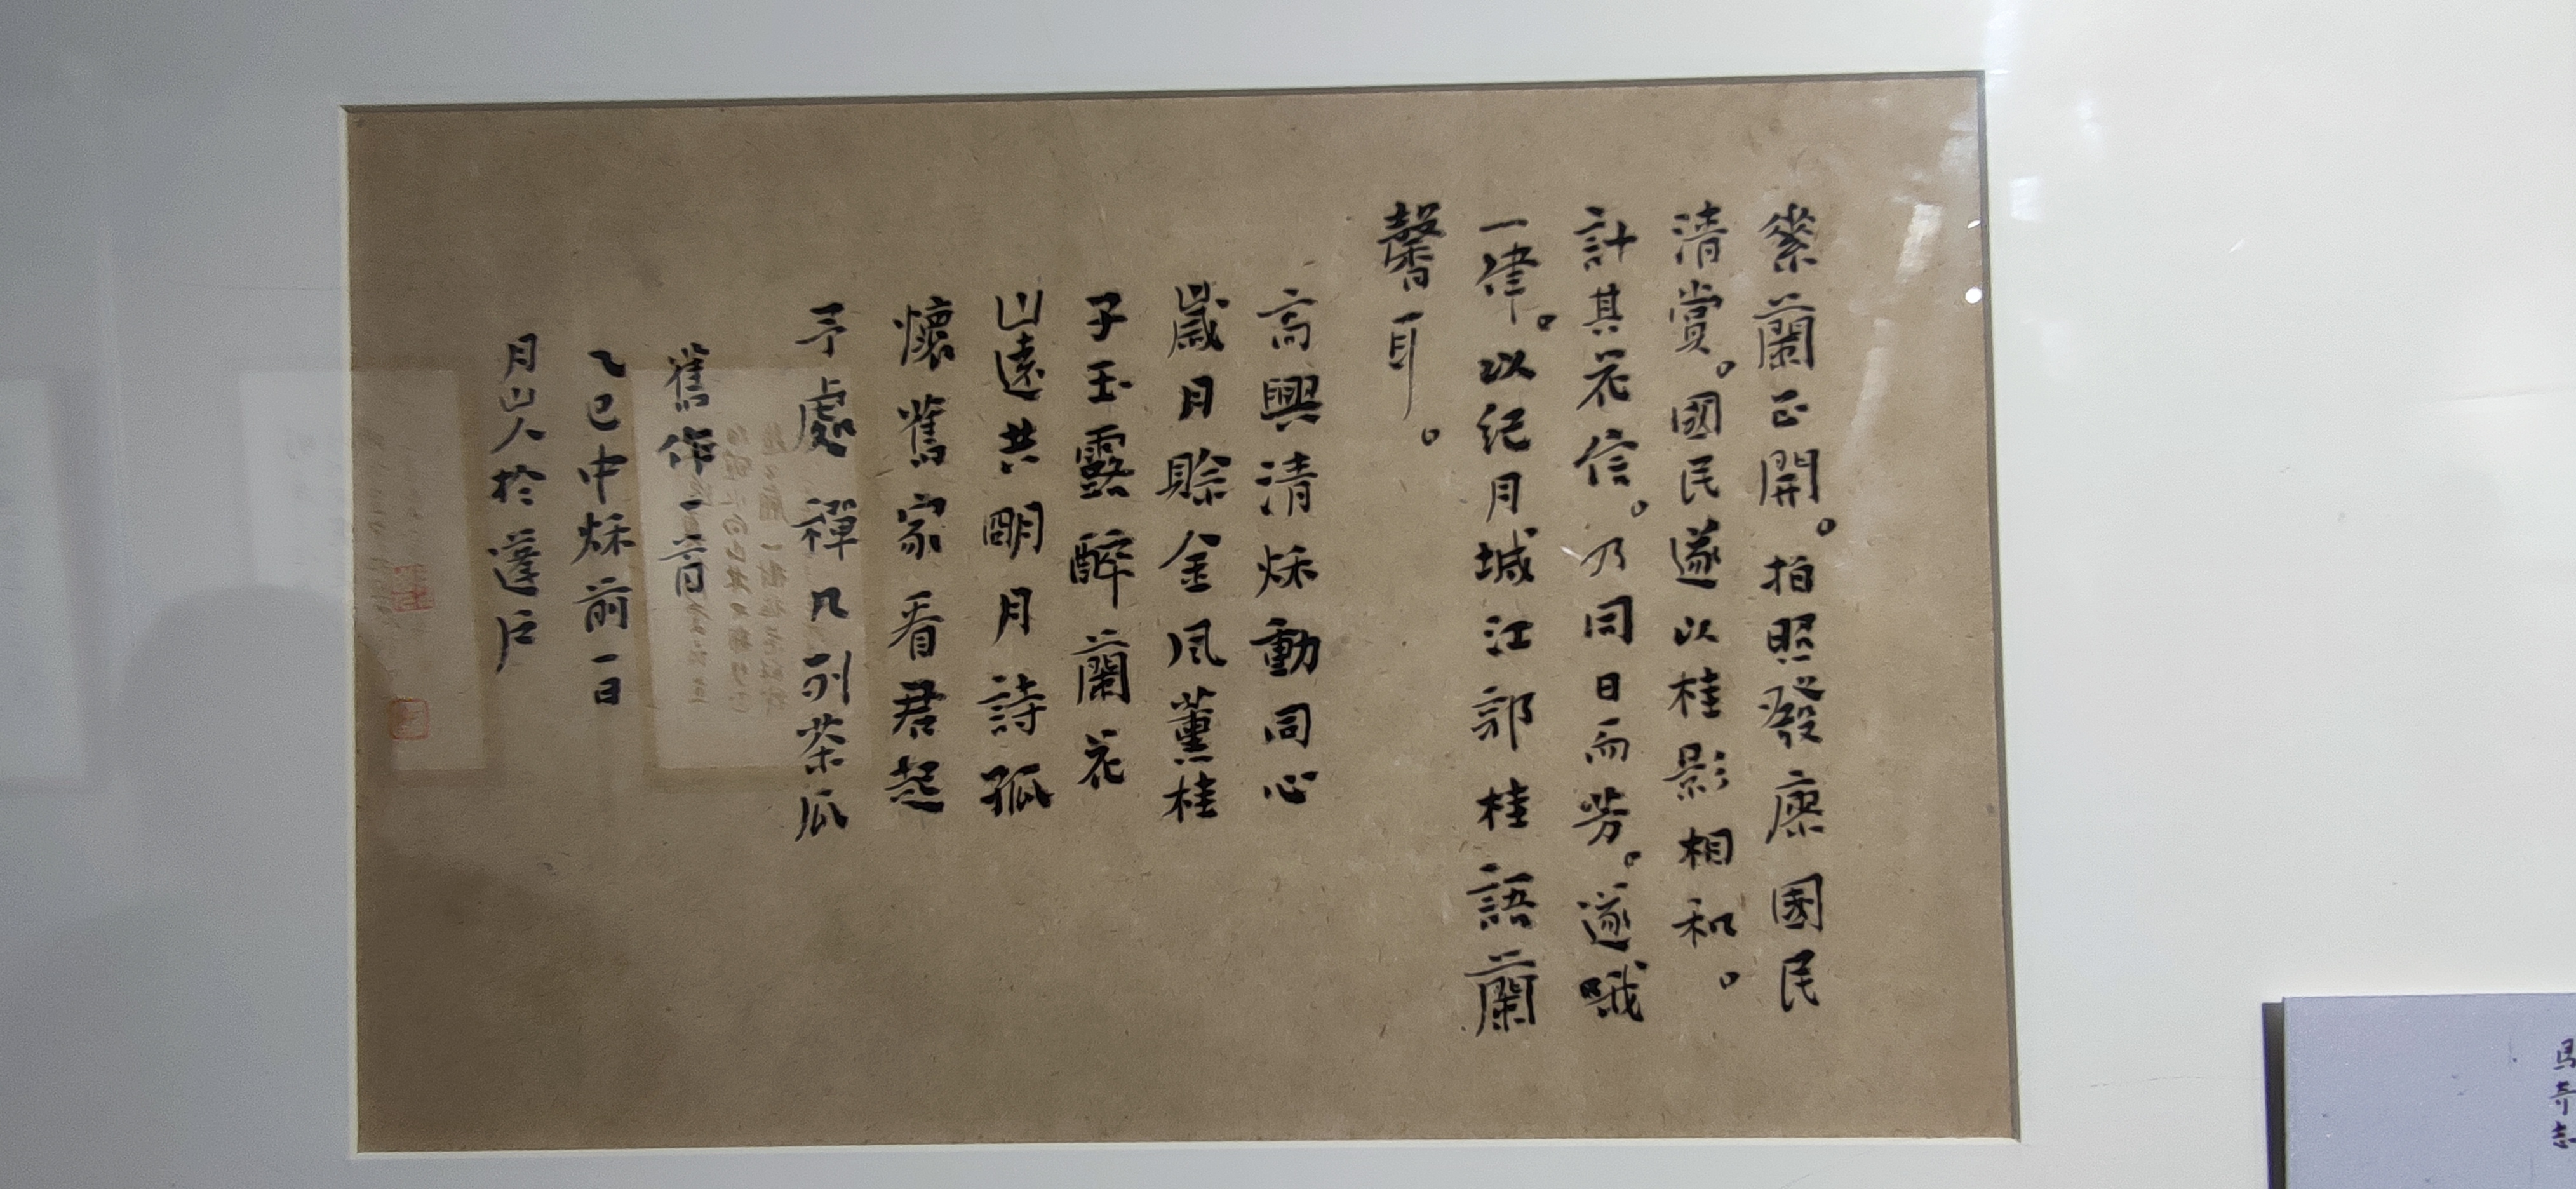 蘭正開。拍照發廖國民
清賞。國民遂以桂影相和。
計其花信。乃同日而芳。遂哦
一律。以紀月城江郭桂語蘭
馨耳。
高興清秌動同心
歲月賒金風薰桂
子玉露醉蘭花
山遠共朙月詩孤
懷舊家看君起
予處禪几列茶瓜
舊作一首
乙巳中秌前一日
月山人於蓬戶